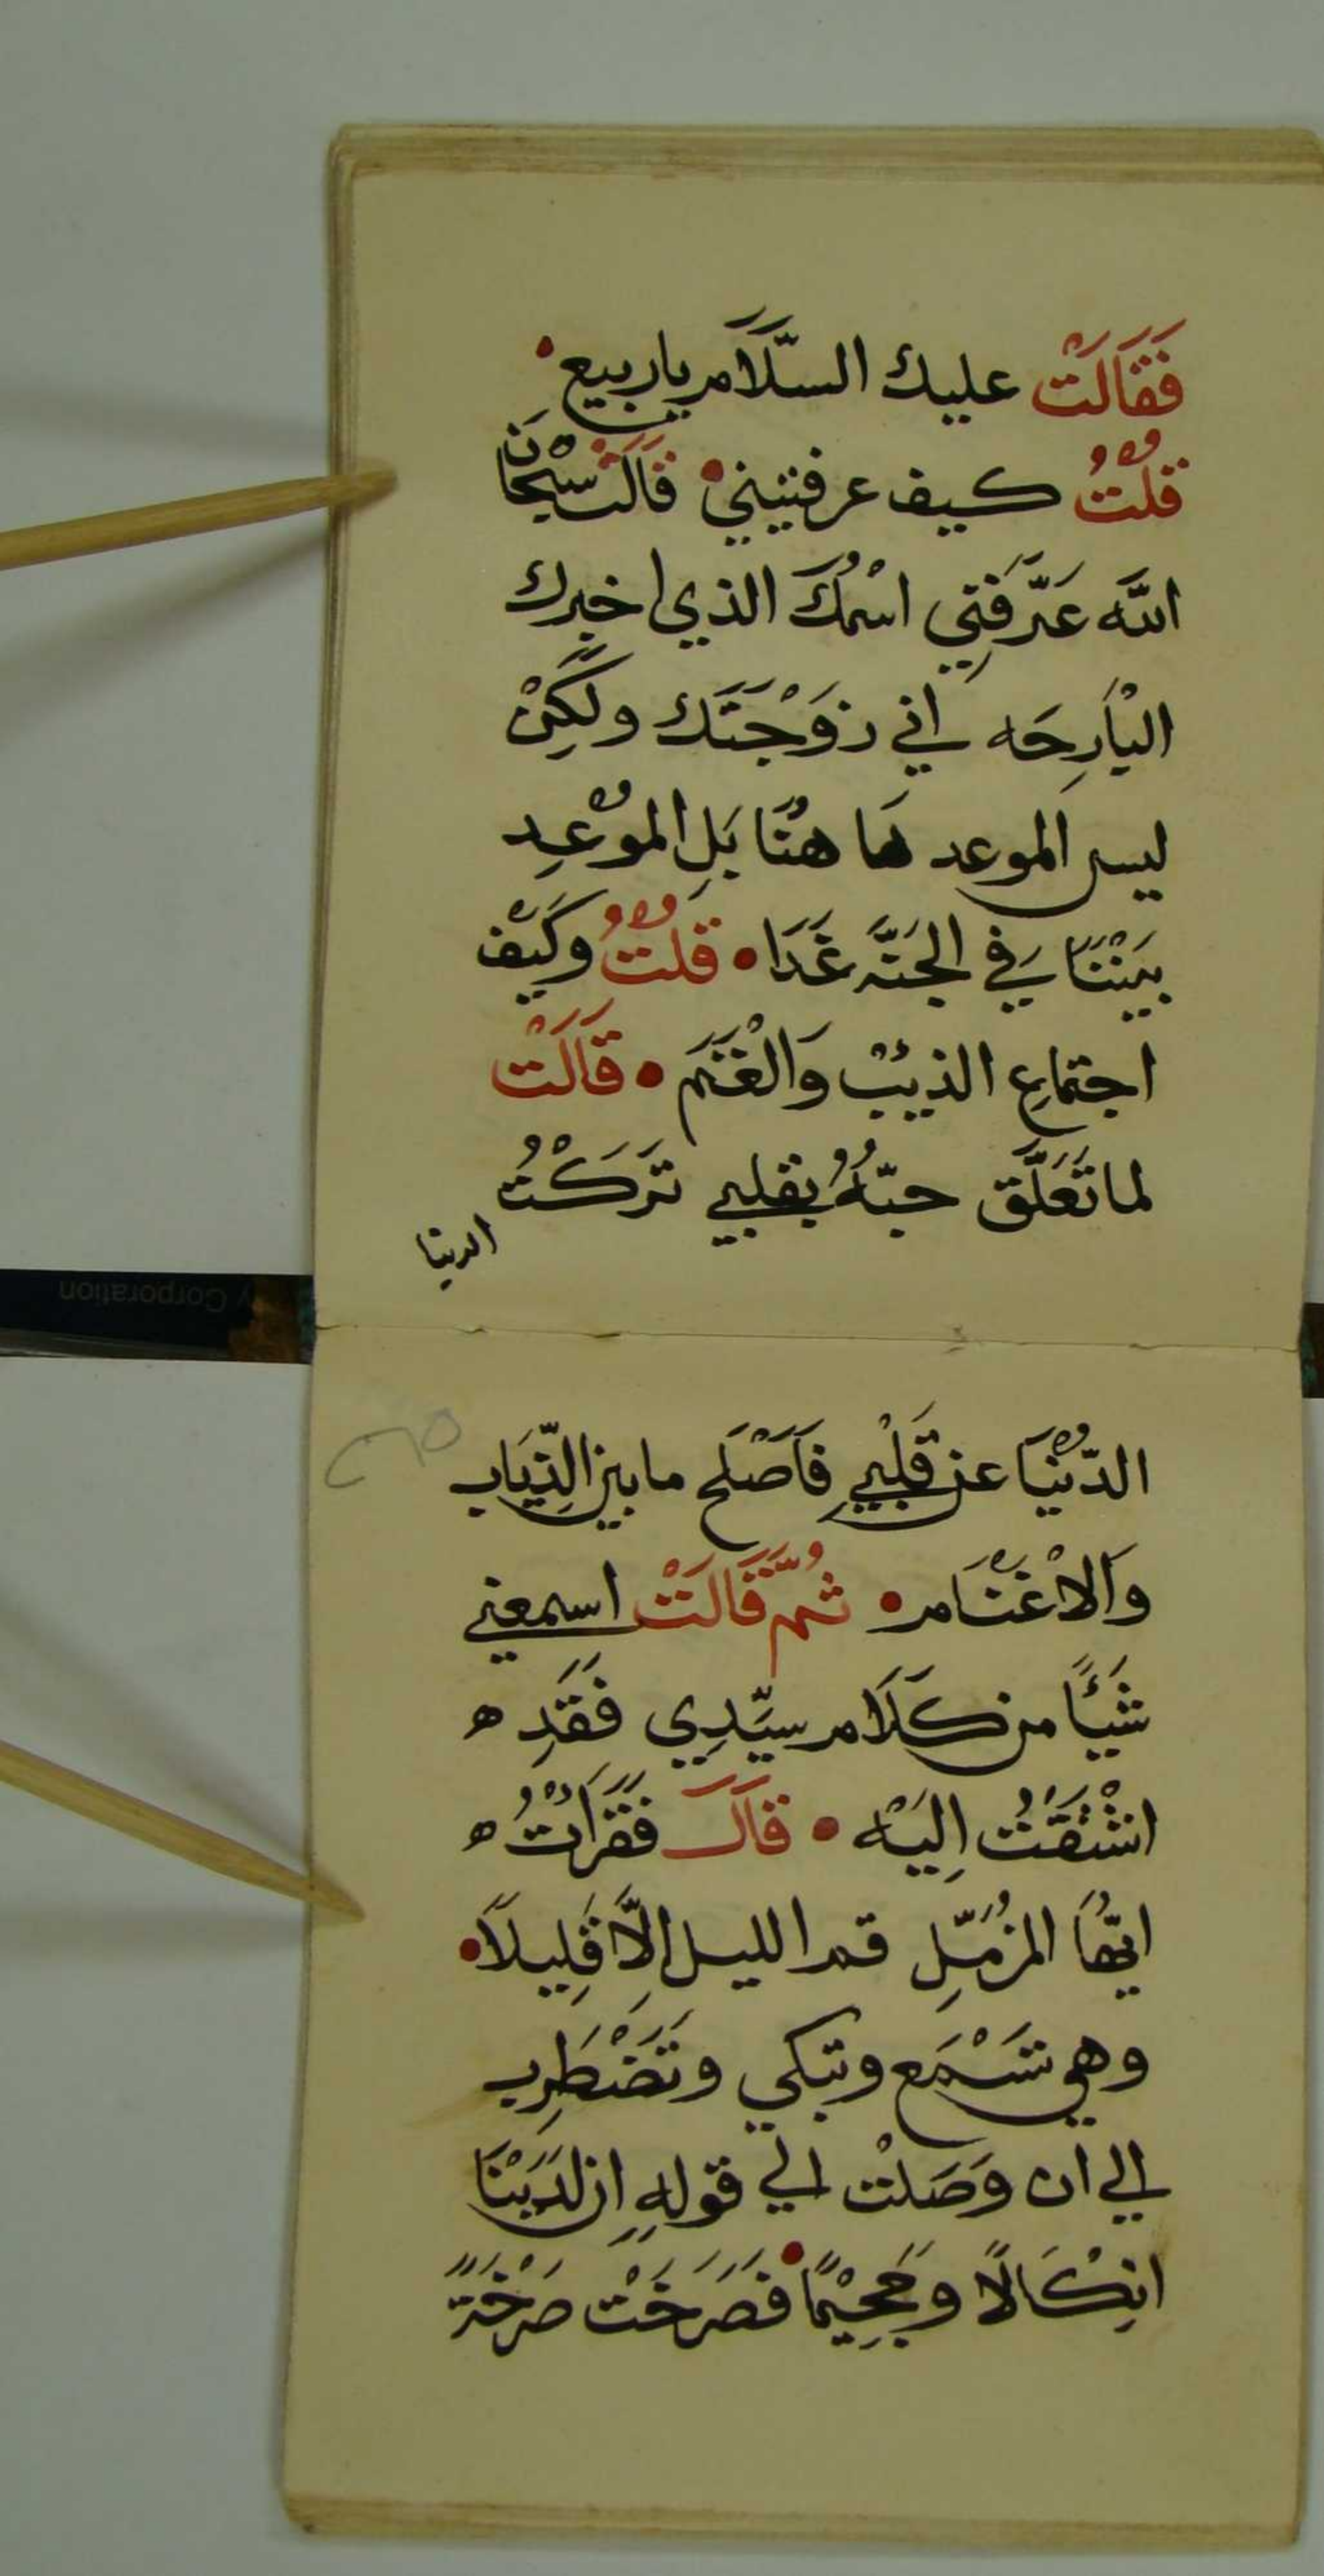 فَقَالَتْ عليك السَّلَام ياربيع
قلْتُ كيف عرفتيني قَالَتْ سبْحَانَ
الله عَرَّفَنِي اسْمُكَ الذي اخبرك
البْارِحَه اني زَوْجَتَك ولَكِنْ
ليس الموعد هَا هنُا بَلِ الموْعِد
بيَنْنَا في الجَنَّه غَدَا قلْتُ وكَيْف
اجتماع الذيبْ وَالْغَنَم قَالَتْ
لما تَعَلَّق حبّهُ بقلبي تَرَكْتُ
الدنيا
الدّنْيَا عن قَلْبِي فَاَصْلَح مابين الذِّيَاب
وَالاْغْنَام ثُمَّ قَالَتْ اسمعني
شَيْأً من كَلَام سيِّدِي فَقَدِ ه
اشْتَقْتُ اِليَهْ قَالَ فَقَرَاْتُ ه
ايّهُا المزُمّلِ قم الليل الِاَّ قَلِيلاً
وهي تَسْمَع وتبكي وتَضْطَرِب
الي ان وَصَلتْ الي قولهِ ان لَدَيْنَا
انِكْاَلاً وجَحِيْمًا فَصَرَخَتْ صَرْخَةً